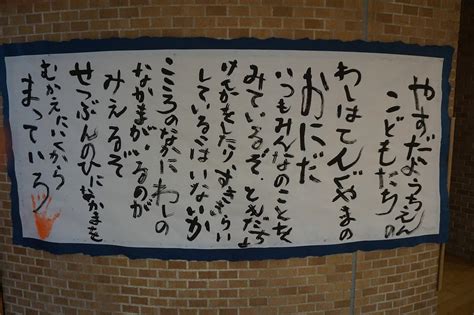 やすだようちえん
こどもたちの
わしはてんぐやまの
おにだ
いつもみんなのことを
みているぞ ともだちと
けんかをしたりすききらい
しているこはいないか
こころのなかにわしの
なかまがいるのが
みえるぞ
せつぶんのひになかまを
むかえにいくから
まっていろ